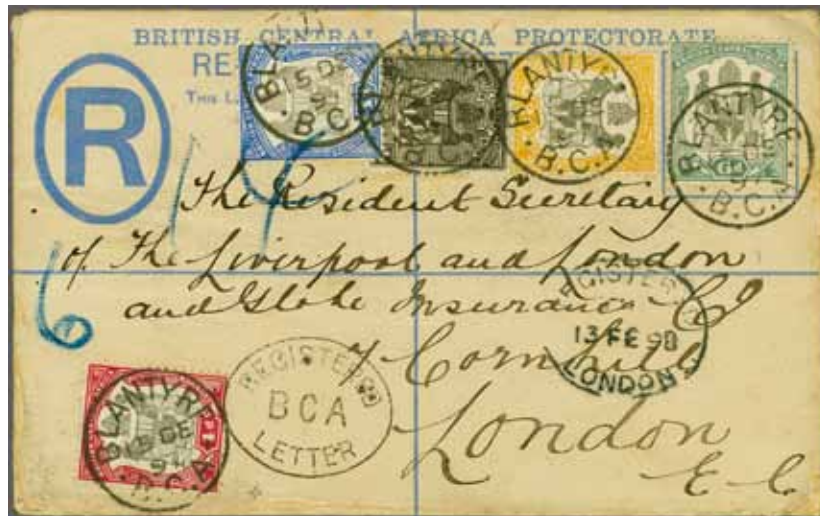 BRITISH CENTRAL AFRICA PROTECTORATE
RE
THIS L
R
BLANTYRE
15 DE
9
B.C.
BLANTYRE
BLANTYRE
B.C.A
BLANTYRE
DE
9
B.C.A
The Resident Secretary
of The Liverpool and London
and Globe Insurance Co
7 Cornhill
London
E.C.
6
REGISTERED
13 FE 98
LONDON
BLANTYRE
15 DE
9
B.C.A
REGISTERED
BCA
LETTER